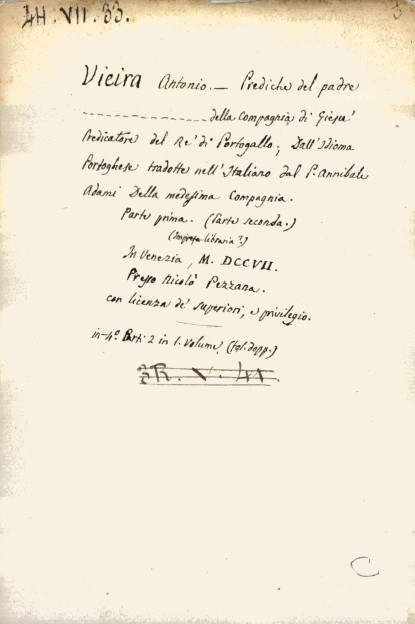 44. VII. 33.
Vieira Antonio. — Prediche del padre
- - - - - - - - - - - - - - della Compagnia di Giesu'
Predicatore del Re' di Portogallo; Dall'Idioma
Portoghese tradotte nell'Italiano dal P. Annibale
Adami Della medesima Compagnia.
Parte prima. (Parte seconda.)
(Impresa libraria?)
In Venezia, M. DCCVII.
Presso Nicolò Pezzana.
con licenza de' superiori, e privilegio.
in-4º Parti 2 in 1. Volume, (tgl. dopp.)
R. V. 41.
C